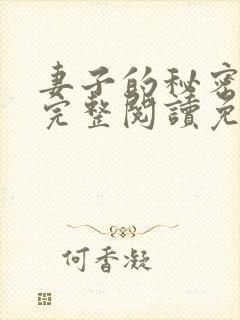 妻子的秘密
完整閱讀免
何香凝